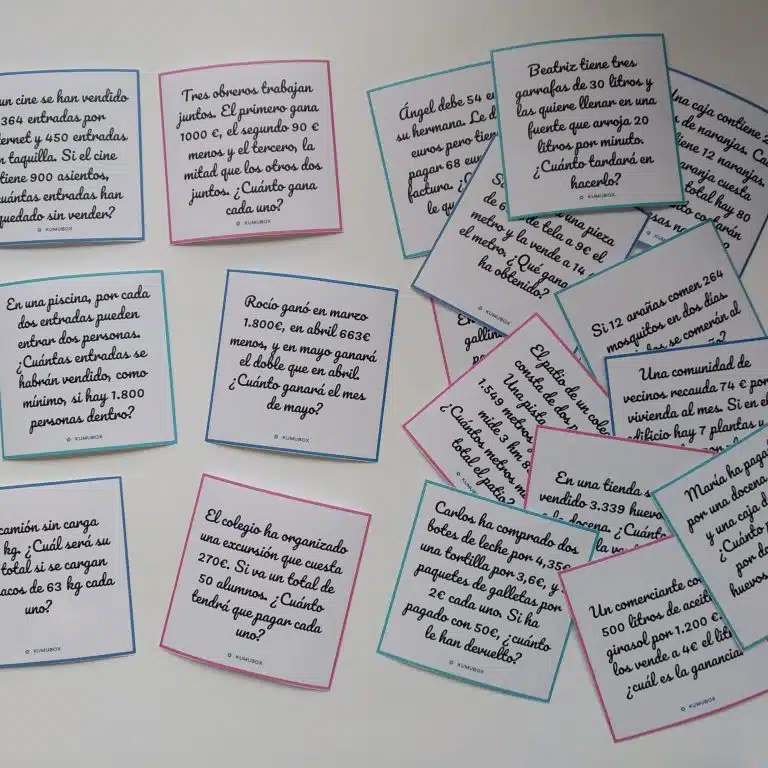 un cine se han vendido
364 entradas por
y 450 entradas
taquilla. Si el cine
tiene 900 asientos,
entradas han
quedado sin vender?
KUMUBOX
Tres obreros trabajan
juntos. El primero gana
1000 €, el segundo 90 €
menos y el tercero, la
mitad que los otros dos
juntos. ¿Cuánto gana
cada uno?
KUMUBOX
En una piscina, por cada
dos entradas pueden
entrar dos personas.
¿Cuántas entradas se
habrán vendido, como
mínimo, si hay 1.800
personas dentro?
KUMUBOX
Rocío ganó en marzo
1.800€, en abril 663€
menos, y en mayo ganará
el doble que en abril.
¿Cuánto ganará el mes
de mayo?
KUMUBOX
camión sin carga
kg. ¿Cuál será su
total si se cargan
de 63 kg cada
uno?
KUMUBOX
El colegio ha organizado
una excursión que cuesta
270€. Si va un total de
50 alumnos. ¿Cuánto
tendrá que pagar cada
uno?
KUMUBOX
Ángel debe 54
su hermana. Le
euros pero
pagar 68
factura.
le
Beatriz tiene tres
garrafas de 30 litros y
las quiere llenar en una
fuente que arroja 20
litros por minuto.
¿Cuánto tardará en
hacerlo?
KUMUBOX
una caja contiene
de naranjas.
12 naranjas.
cuesta
total hay 80
una pieza
de tela a 9€ el
metro y la vende a 14
el metro, ¿Qué
ha obtenido?
KUMUBOX
Si 12 arañas comen 264
mosquitos en dos días.
se comerán al
El patio de un
consta de dos
Una pista
1.549 metros
mide 3 hm
¿Cuántos metros
total el patio?
Una comunidad de
vecinos recauda 74 € por
vivienda al mes. Si en el
edificio hay 7 plantas y
En una tienda
vendido 3.339
docena. ¿Cuánt
María ha
por una docena
y una caja
¿Cuánto
por
huevos
Carlos ha comprado dos
botes de leche por 4,35€
una tortilla por 3,6€, y
paquetes de galletas por
2€ cada uno. Si ha
pagado con 50€, ¿cuánto
le han devuelto?
KUMUBOX
Un comerciante
500 litros de
girasol por 1.200 €.
los vende a 4€ el
¿cuál es la ganancia
KUMUBOX